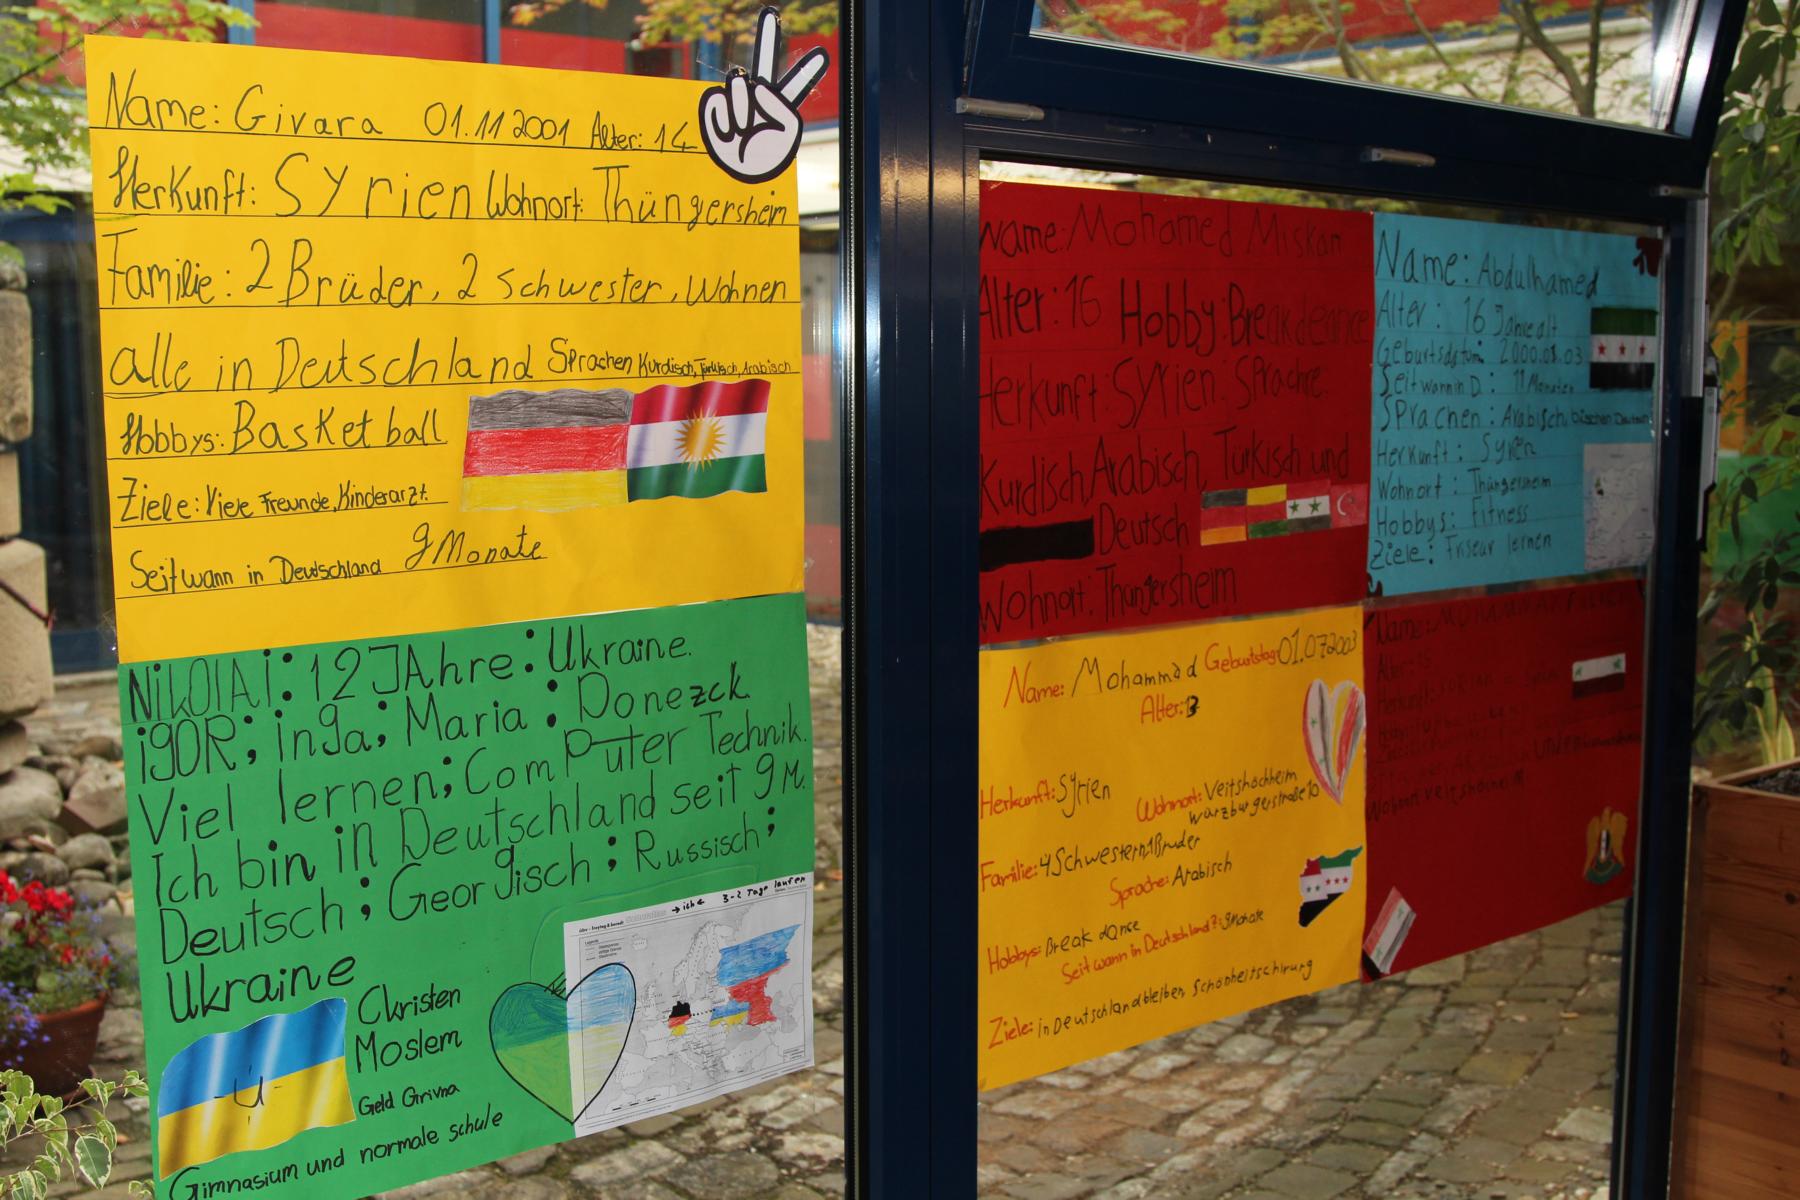 Name: Givara 01.11 2001 Alter: 14
Herkunft: Syrien Wohnort: Thüngersheim
Familie: 2 Brüder, 2 Schwester, Wohnen
alle in Deutschland Sprachen Kurdisch, Türkisch, Arabisch
Hobbys: Basketball
Ziele: Viele Freunde, Kinderarzt.
Seit wann in Deutschland 9 Monate
NiKOlAi: 12 JAhre: Ukraine.
igOR; inga; Maria: Donezck
Viel lernen; ComPuter Technik.
Ich bin in Deutschland seit 9 M.
Deutsch; Georgisch; Russisch;
Ukraine
Ckristen
Moslem
Geld Grivna
Gimnasium und normale schule
→ ich ← 3-2 Tage laufen
Name: Mohamed Miskan
Alter: 16 Hobby: Breakdeance
Herkunft: Syrien. Sprachre:
Kurdisch, Arabisch, Türkisch und
Deutsch
Wohnort: Thangersheim
Name: Abdulhamed
Alter: 16 Jahre alt
Geburtsdatum 2000.08.03
Seit wann in D.: 11 Monaten
Sprachen: Arabisch, bisschen Deutsch
Herkunft: Syrien
Wohnort: Thüngersheim
Hobbys: Fitness
Ziele: Friseur lernen
Name: Mohammad Geburtstag: 01.07.2003
Alter: 13
Herkunft: Syrien
Wohnort: Veitshöchheim
würzburgerstraße 10
Familie: 4 Schwestern, 1 Bruder
Sprache: Arabisch
Hobbys: Break dance
Seit wann in Deutschland?: 9 Monate
Ziele: in Deutschland bleiben, Schönheitschirung
Name: MOHAMMAD
Alter: 15
Wohnort Veitshöchheim